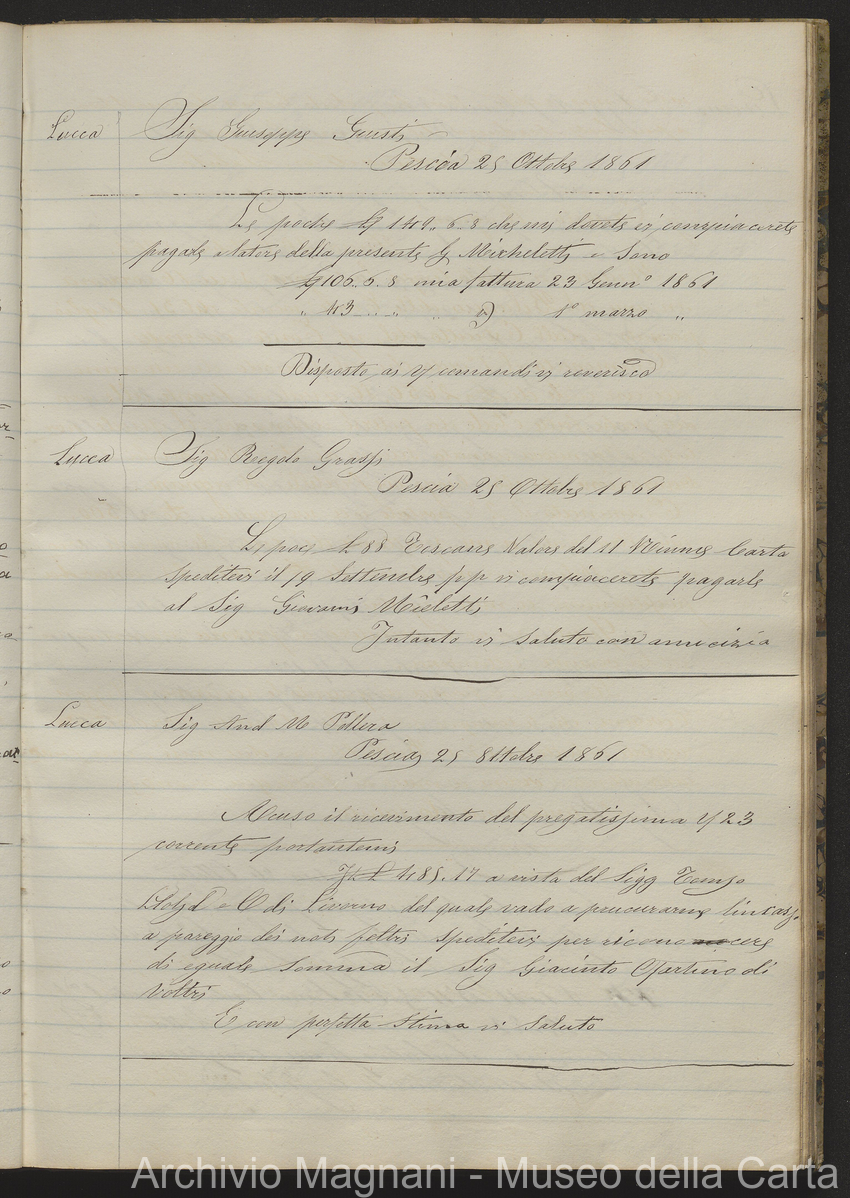 Lucca Sig Giuseppe Giusti
Pescia 25 Ottobre 1861
Le poche 149.. 6. 8 che mi dovete vi compiacerete
pagarle alatore della presente Micheletti e Sono
106. 6. 8 mia fattura 23 Genn° 1861
" 43 " " " 1° marzo "
Disposto ai V comandi vi reverisco
Lucca Sig Regolo Grassi
Pescia 25 Ottobre 1861
Le poce 88 Toscane Valore del Carta
Speditevi il 19 Settembre pp vi compiacerete pagarle
al Sig Giovanni Micletti
Intanto vi saluto con amicizia
Lucca Sig And M Pollera
Pescia 25 8ttobre 1861
Acuso il ricevimento del pregatissima V 23
corrente portantemi
485. 17 a vista del Sigg
di Livorno del quale vado a procurarne lincasso
a pareggio dei noti feltri Speditevi per
di eguale Somma il Sig Giacinto di
Voltri
E con perfetta Stima vi Saluto
Archivio Magnani - Museo della Carta